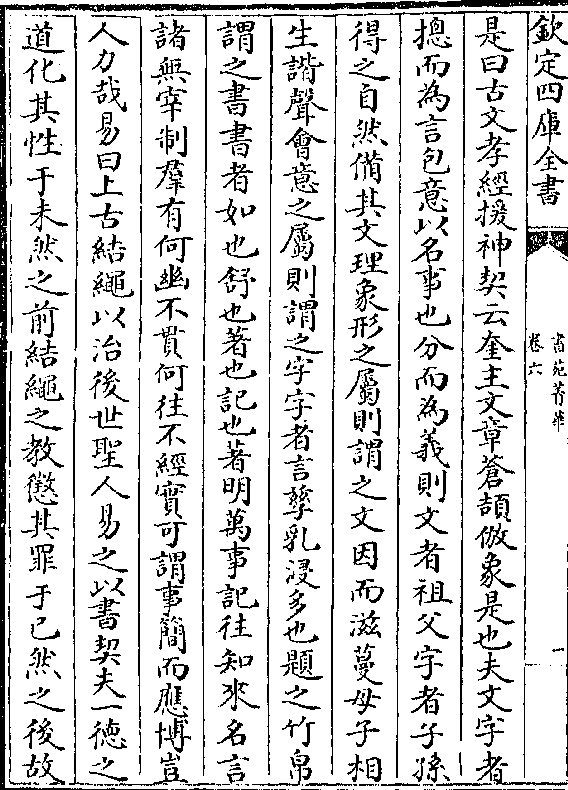 欽定四庫全書
書苑菁華
卷六
一
是曰古文孝經援神契云奎主文章蒼頡倣象是也夫文字者
摠而為言包意以名事也分而為義則文者祖父字者子孫
得之自然備其文理象形之屬則謂之文因而滋蔓母子相
生諧聲會意之屬則謂之字字者言孳乳浸多也題之竹帛
謂之書書者如也舒也著也記也著明萬事記往知來名言
諸無宰制羣有何幽不貫何往不經實可謂事簡而應博豈
人力哉易曰上古結繩以治後世聖人易之以書契夫一徳之
道化其性于未然之前結繩之教懲其罪于已然之後故